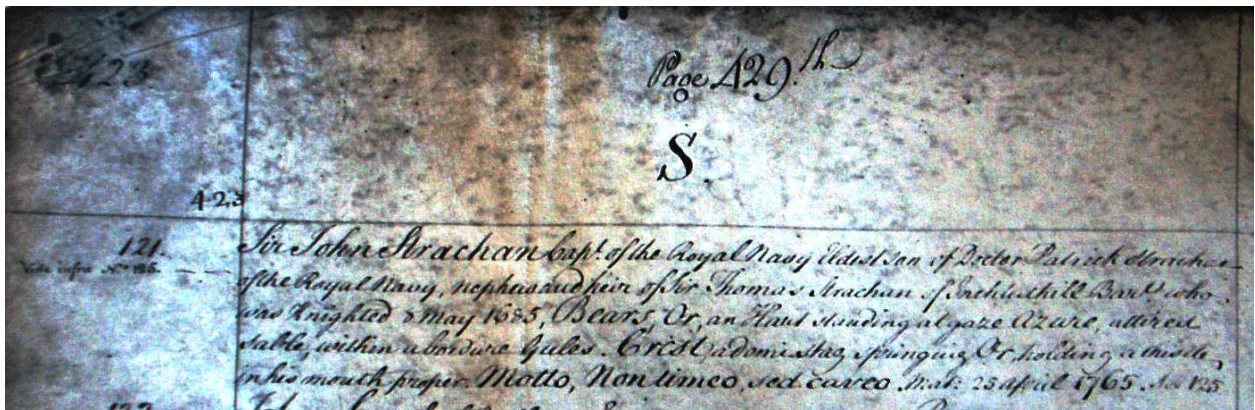 423
Page 429th
S.
423
121.
Vide infra No 125.
Sir John Strachan Capt. of the Royal Navy Eldest Son of Doctor Patrick Strachan
of the Royal Navy, nephew and heir of Sir Thomas Strachan of Bart. who
was Knighted 8 May 1685, Bears Or, an Hart standing at gaze Azure, attired
Sable, within a bordure Gules. Crest, a demi Stag springing Or, holding a thistle
in his mouth proper. Motto, Non timeo, sed caveo. Mat: 25 april 1765. See 125
122